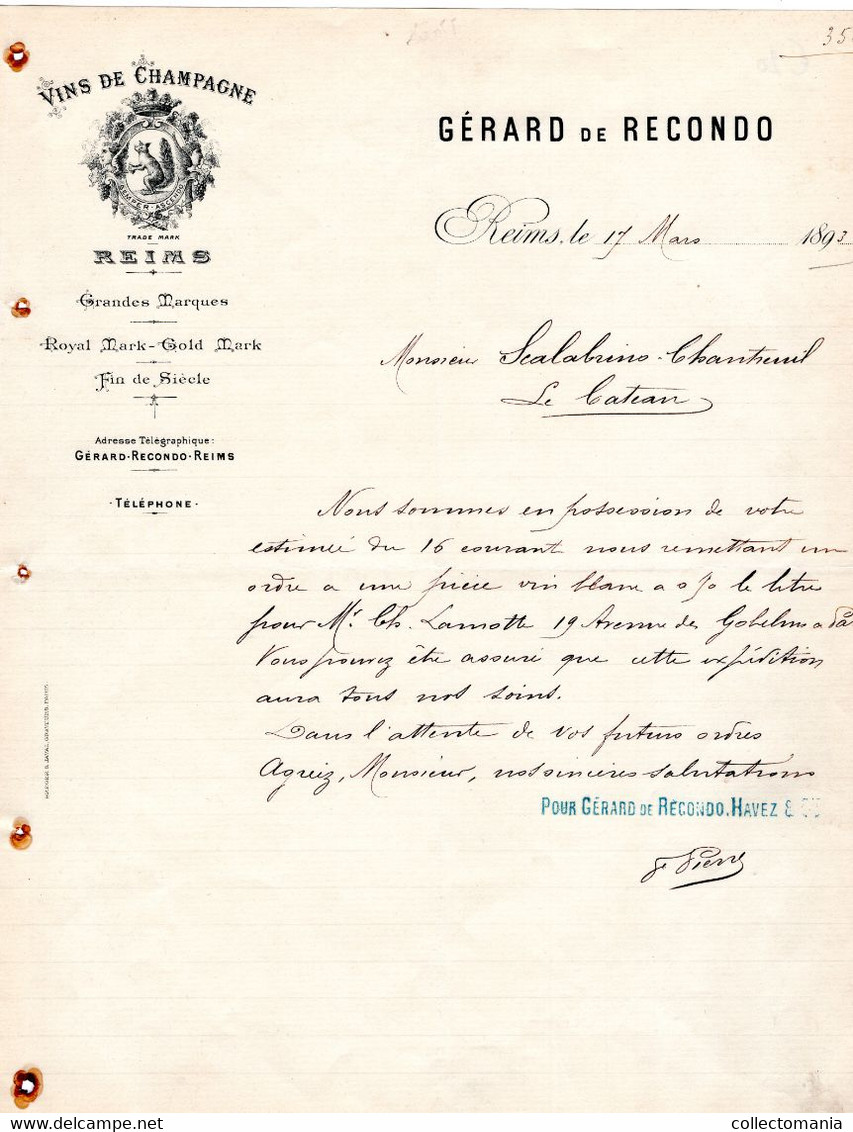 35
VINS DE CHAMPAGNE
SEMPER · ASCENDO
TRADE MARK
REIMS
Grandes Marques
Royal Mark - Gold Mark
Fin de Siècle
Adresse Télégraphique:
GÉRARD-RECONDO-REIMS
· TÉLÉPHONE ·
GÉRARD DE RECONDO
Reims, le 17 Mars 1893
Monsieur Scalabrino-Chantreuil
Le Cateau
Nous sommes en possession de votre
estimée du 16 courant nous remettant un
ordre a une pièce vin blanc a 0 70 le litre
pour Mr. Ch. Lamotte 19 Avenue des Gobelins a Pa
Vous pouvez être assuré que cette expédition
aura tous nos soins.
Dans l'attente de vos futurs ordres
Agréez, Monsieur, nos sincères salutations
POUR GÉRARD DE RECONDO, HAVEZ &
collectomania
www.delcampe.net